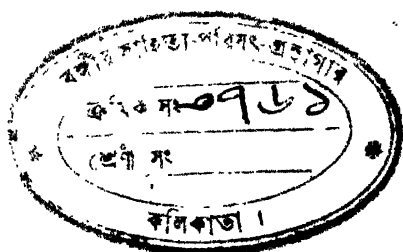 বঙ্গীয় সাহিত্য-পরিষৎ-গ্রন্থাগার
ক্রমিক সং ০৭৬১
শ্রেণী সং
কলিকাতা ।